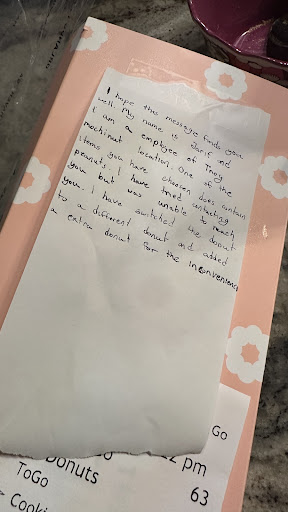 I hope this message finds you
well. My name is Zarif and
I am a employee of Troy
mochinut location. One of the
items you have choosen does contain
peanut, I have tried contacting
you but was unable to reach
you. I have switched the donut
to a different donut and added
a extra donut for the inconvenience
Go
pm
Donuts
63
ToGo